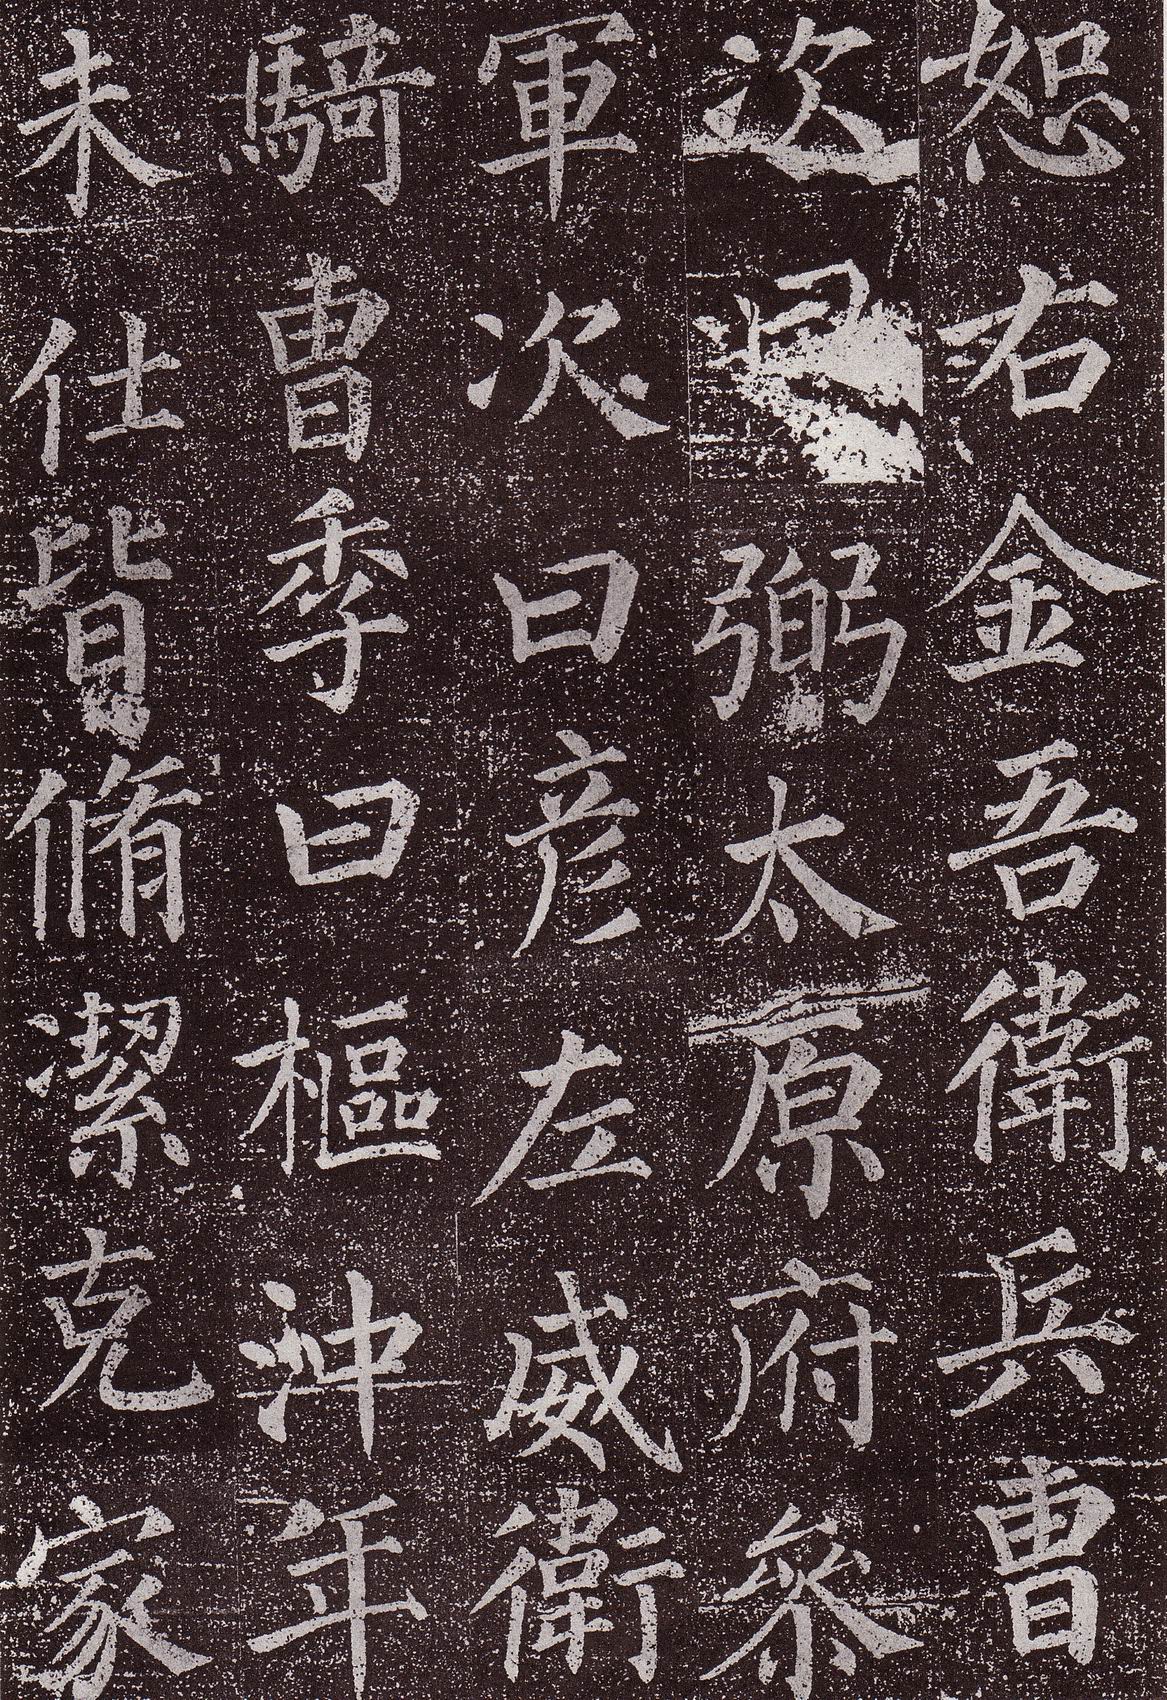 恕右金吾衛兵曹
次曰弼太原府參
軍次曰彥左威衛
騎曹季曰樞沖年
未仕皆脩潔克家